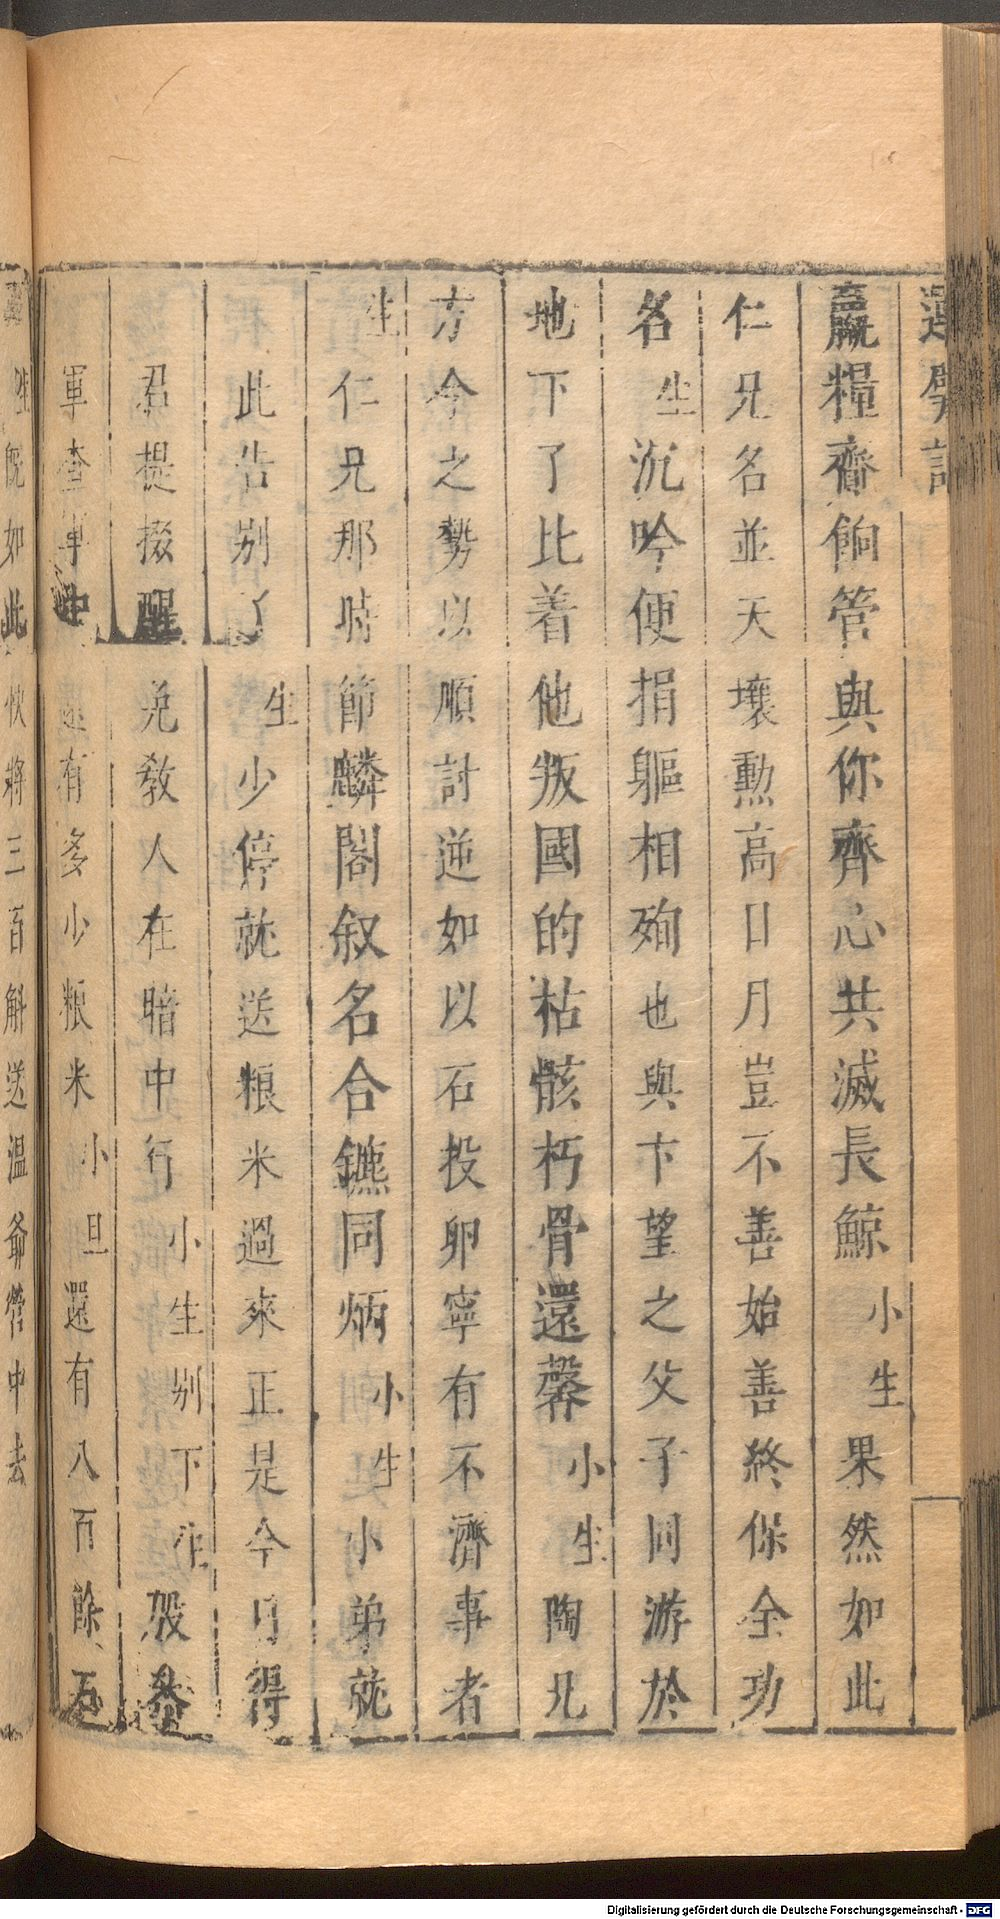 運甓記
羸糧齊餉管與你齊心共滅長鯨小生果然如此
仁兄名並天壤勲高日月豈不善始善終保全功
名生沉吟便捐軀相殉也與卞望之父子同游於
地下了比着他叛國的枯骸朽骨還馨小生陶兄
方今之勢以順討逆如以石投卵寧有不濟事者
生仁兄那時節麟閣叙名合鑣同炳小生小弟就
此告别了生少停就送粮米過來正是今日得
君提掇醒免教人在暗中行小生别下生殺叅
軍查軍中還有多少粮米小旦還有八百餘石
生既如此快將三百斛送溫爺營中去
Digitalisierung gefördert durch die Deutsche Forschungsgemeinschaft - DFG